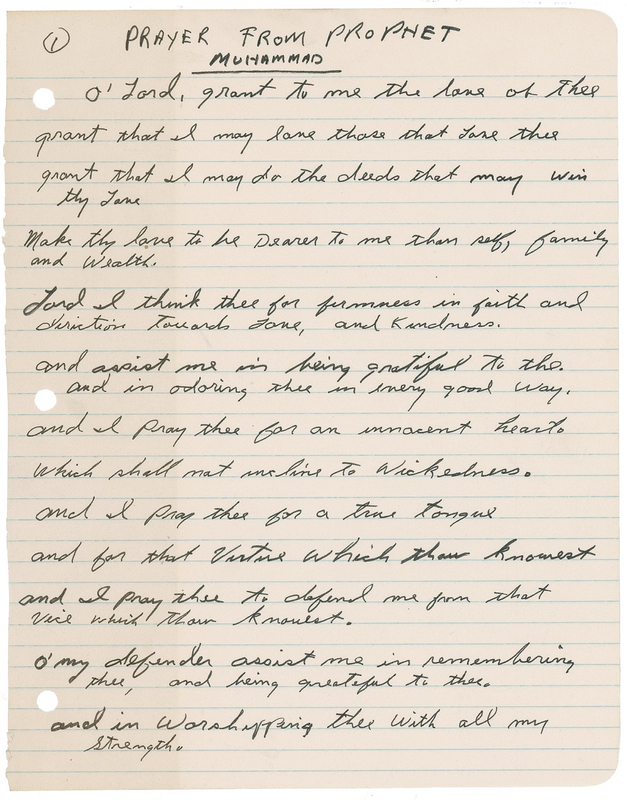 ① PRAYER FROM PROPHET
MUHAMMAD
O' Lord, grant to me the love of thee
grant that I may love those that Love thee
grant that I may do the deeds that may win
thy Love
Make thy love to be Dearer to me than self, family
and Wealth.
Lord I think thee for firmness in faith and
diriction Towards Love, and Kindness.
and assist me in being gratiful to the.
and in odoring thee in every good way.
and I Pray thee for an innocent heart.
Which shall not incline to Wickedness.
and I Pray thee for a true Tongue
and for that Virtue Which thow knowest
and I pray thee to defend me from that
Vice which thow knowest.
O' my defender assist me in remembering
thee, and being greateful to thee.
and in Worshipping thee With all my
Strength.